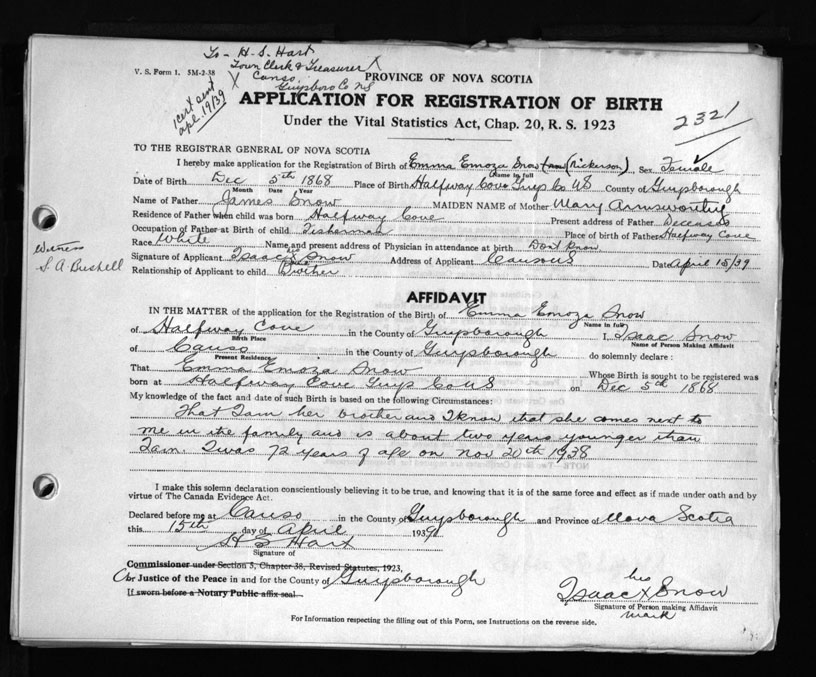 To - H. S. Hart
Town Clerk & Treasurer X
X Canso
Guysboro Co NS
V. S. Form 1. 5M-2-38
1 cert sent
apl. 19/39
PROVINCE OF NOVA SCOTIA
APPLICATION FOR REGISTRATION OF BIRTH
2321
Under the Vital Statistics Act, Chap. 20, R. S. 1923
TO THE REGISTRAR GENERAL OF NOVA SCOTIA
I hereby make application for the Registration of Birth of Emma Emoza Snow (now Nickerson) Sex Female
Name in full
Date of Birth Dec 5th 1868 Place of Birth Halfway Cove Guys Co NS County of Guysborough
Month Date Year
Name of Father James Snow MAIDEN NAME of Mother Mary Armsworthy
Residence of Father when child was born Halfway Cove Present address of Father Deceased
Occupation of Father at Birth of child Fisherman Place of birth of Father Halfway Cove
Race White Name and present address of Physician in attendance at birth Dont know
Witness
S. A. Bushell
Signature of Applicant Isaac X Snow Address of Applicant Canso NS Date April 15/39
Relationship of Applicant to child Brother
AFFIDAVIT
IN THE MATTER of the application for the Registration of the Birth of Emma Emoza Snow
Name in full
of Halfway Cove in the County of Guysborough I, Isaac Snow
Birth Place Name of Person Making Affidavit
of Canso in the County of Guysborough do solemnly declare :
Present Residence
That Emma Emoza Snow Whose Birth is sought to be registered was
born at Halfway Cove Guys Co NS on Dec 5th 1868
My knowledge of the fact and date of such Birth is based on the following Circumstances:
That I am her brother and I know that she comes next to
me in the family and is about two years younger than
I am. I was 72 years of age on Nov 20th 1938
I make this solemn declaration conscientiously believing it to be true, and knowing that it is of the same force and effect as if made under oath and by
virtue of The Canada Evidence Act.
Declared before me at Canso in the County of Guysborough and Province of Nova Scotia
this 15th day of April 1939
H S Hart
Signature of
Commissioner under Section 3, Chapter 38, Revised Statutes, 1923,
Or Justice of the Peace in and for the County of Guysborough
If sworn before a Notary Public affix seal
his
Isaac X Snow
Signature of Person making Affidavit
mark
For Information respecting the filling out of this Form, see Instructions on the reverse side.